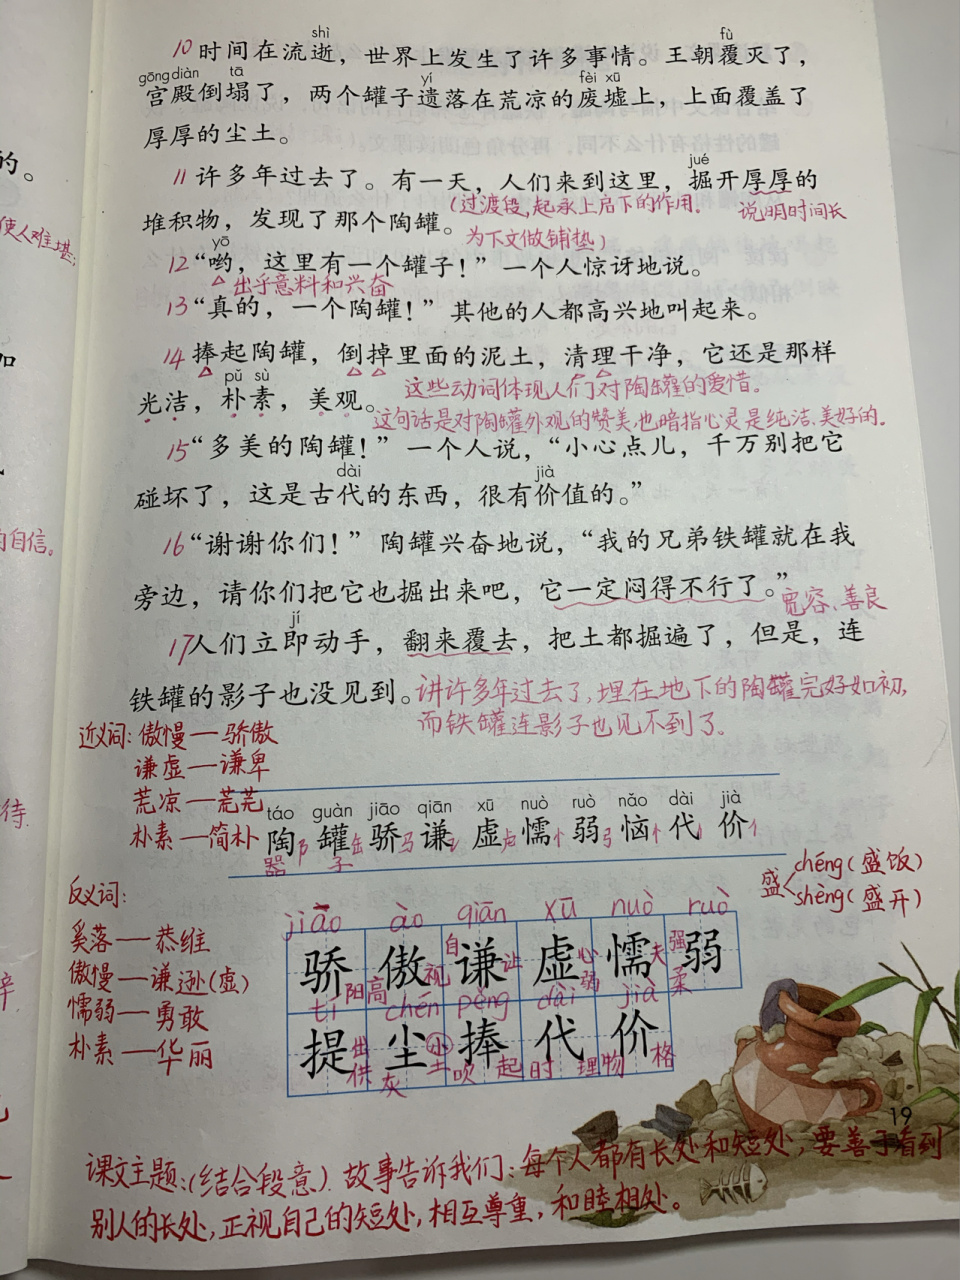 10 时间在流逝，世界上发生了许多事情。王朝覆灭了，
shì fù
gōng diàn tā yí fèi xū
宫殿倒塌了，两个罐子遗落在荒凉的废墟上，上面覆盖了
厚厚的尘土。
jué
11 许多年过去了。有一天，人们来到这里，掘开厚厚的
堆积物，发现了那个陶罐。
(过渡段，起承上启下的作用. 说明时间长
为下文做铺垫)
yō
12 “哟，这里有一个罐子！”一个人惊讶地说。
出乎意料和兴奋
13 “真的，一个陶罐！”其他的人都高兴地叫起来。
14 捧起陶罐，倒掉里面的泥土，清理干净，它还是那样
pǔ sù
光洁，朴素，美观。
这些动词体现人们对陶罐的爱惜。
这句话是对陶罐外观的赞美，也暗指心灵是纯洁、美好的.
15 “多美的陶罐！”一个人说，“小心点儿，千万别把它
dài jià
碰坏了，这是古代的东西，很有价值的。”
16 “谢谢你们！”陶罐兴奋地说，“我的兄弟铁罐就在我
旁边，请你们把它也掘出来吧，它一定闷得不行了。”
宽容、善良
jí
17 人们立即动手，翻来覆去，把土都掘遍了，但是，连
铁罐的影子也没见到。
讲许多年过去了，埋在地下的陶罐完好如初，
而铁罐连影子也见不到了。
近义词：傲慢—骄傲
谦虚—谦卑
荒凉—荒芜
朴素—简朴
táo guàn jiāo qiān xū nuò ruò nǎo dài jià
陶 罐 骄 谦 虚 懦 弱 恼 代 价
器 子
盛
chéng(盛饭)
shèng(盛开)
反义词：
奚落—恭维
傲慢—谦逊(虚)
懦弱—勇敢
朴素—华丽
jiāo ào qiān xū nuò ruò
骄 傲 谦 虚 懦 弱
阳 高 自 视 让 心 弱 夫 强 柔
tí chén pěng dài jià
提 尘 捧 代 价
出 供 灰 小 土 吹 起 时 理 物 格
19
课文主题：(结合段意) 故事告诉我们：每个人都有长处和短处，要善于看到
别人的长处，正视自己的短处，相互尊重，和睦相处。
的。
使人难堪;
加
的自信。
待.